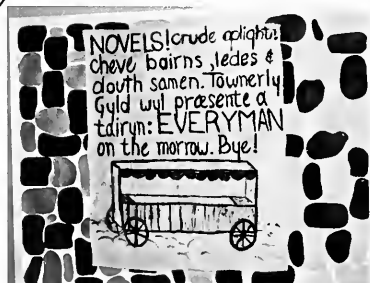 NOVELS! crude aplight!
cheve bairns, ledes &
douth samen. Townerly
Gyld wyl præsente a
tdiryn: EVERYMAN
on the morrow. Bye!